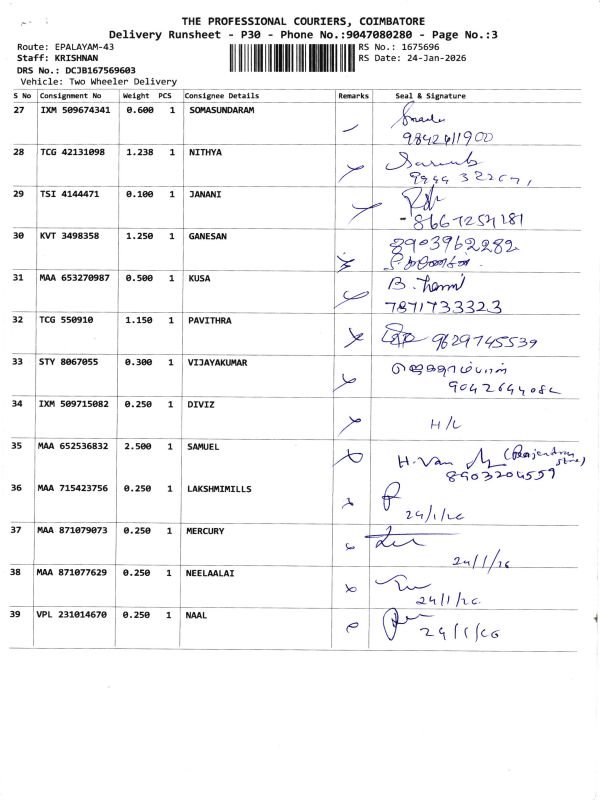 THE PROFESSIONAL COURIERS, COIMBATORE
Delivery Runsheet - P30 - Phone No.:9047080280 - Page No.:3
Route: EPALAYAM-43 RS No.: 1675696
Staff: KRISHNAN RS Date: 24-Jan-2026
DRS No.: DCJB167569603
Vehicle: Two Wheeler Delivery
S No Consignment No Weight PCS Consignee Details Remarks Seal & Signature
27 IXM 509674341 0.600 1 SOMASUNDARAM
9842611900
28 TCG 42131098 1.238 1 NITHYA
29 TSI 4144471 0.100 1 JANANI
8667257181
30 KVT 3498358 1.250 1 GANESAN
8903962282
31 MAA 653270987 0.500 1 KUSA
7871733323
32 TCG 550910 1.150 1 PAVITHRA
9629745539
33 STY 8067055 0.300 1 VIJAYAKUMAR
34 IXM 509715082 0.250 1 DIVIZ
H/L
35 MAA 652536832 2.500 1 SAMUEL
H. Van
8903204559
36 MAA 715423756 0.250 1 LAKSHMIMILLS
24/1/26
37 MAA 871079073 0.250 1 MERCURY
24/1/26
38 MAA 871077629 0.250 1 NEELAALAI
24/1/26
39 VPL 231014670 0.250 1 NAAL
24/1/26